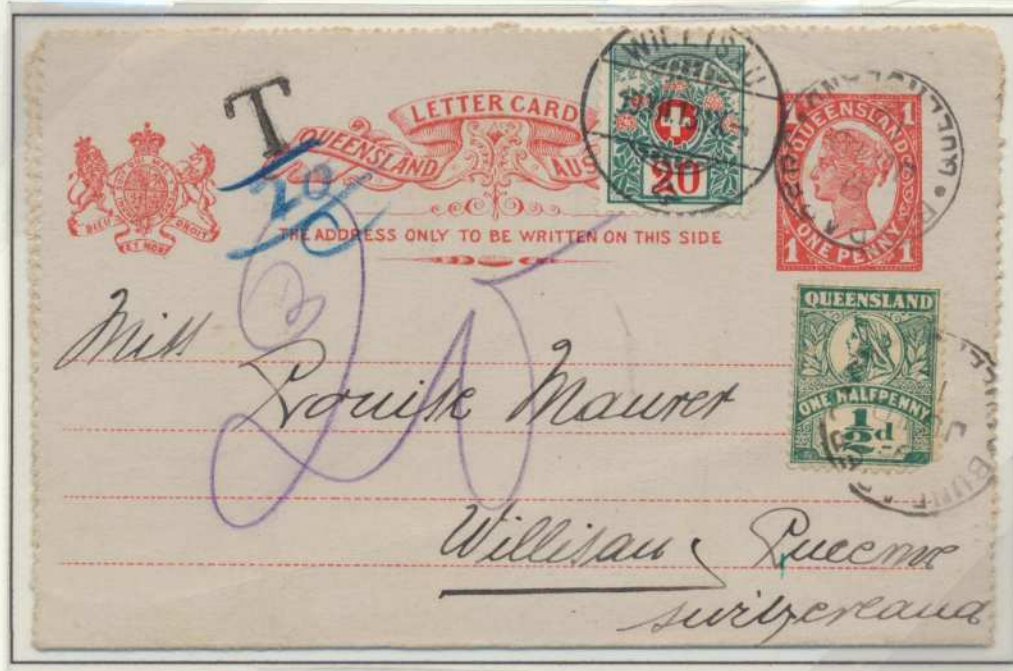 T
LETTER CARD
QUEENSLAND AUS
DIEU ET MON DROIT
THE ADDRESS ONLY TO BE WRITTEN ON THIS SIDE
WILLISAU
20
1 QUEENSLAND 1
1 ONE PENNY 1
QUEENSLAND
BUNDABERG
QUEENSLAND
ONE HALFPENNY
1/2d
20
20
Miss
Louise Maurer
Willisau, Lucerne
Switzerland